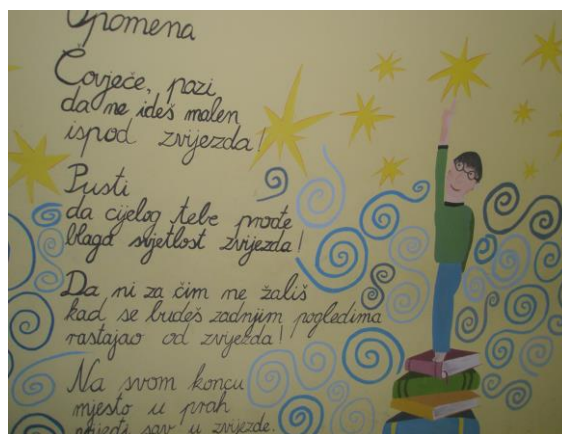 Opomena
Čovječe, pazi
da ne ideš malen
ispod zvijezda!
Pusti
da cijelog tebe prođe
blaga svjetlost zvijezda!
Da ni za čim ne žališ
kad se budeš zadnjim pogledima
rastajao od zvijezda!
Na svom koncu
mjesto u prah
prijeđi sav u zvijezde.